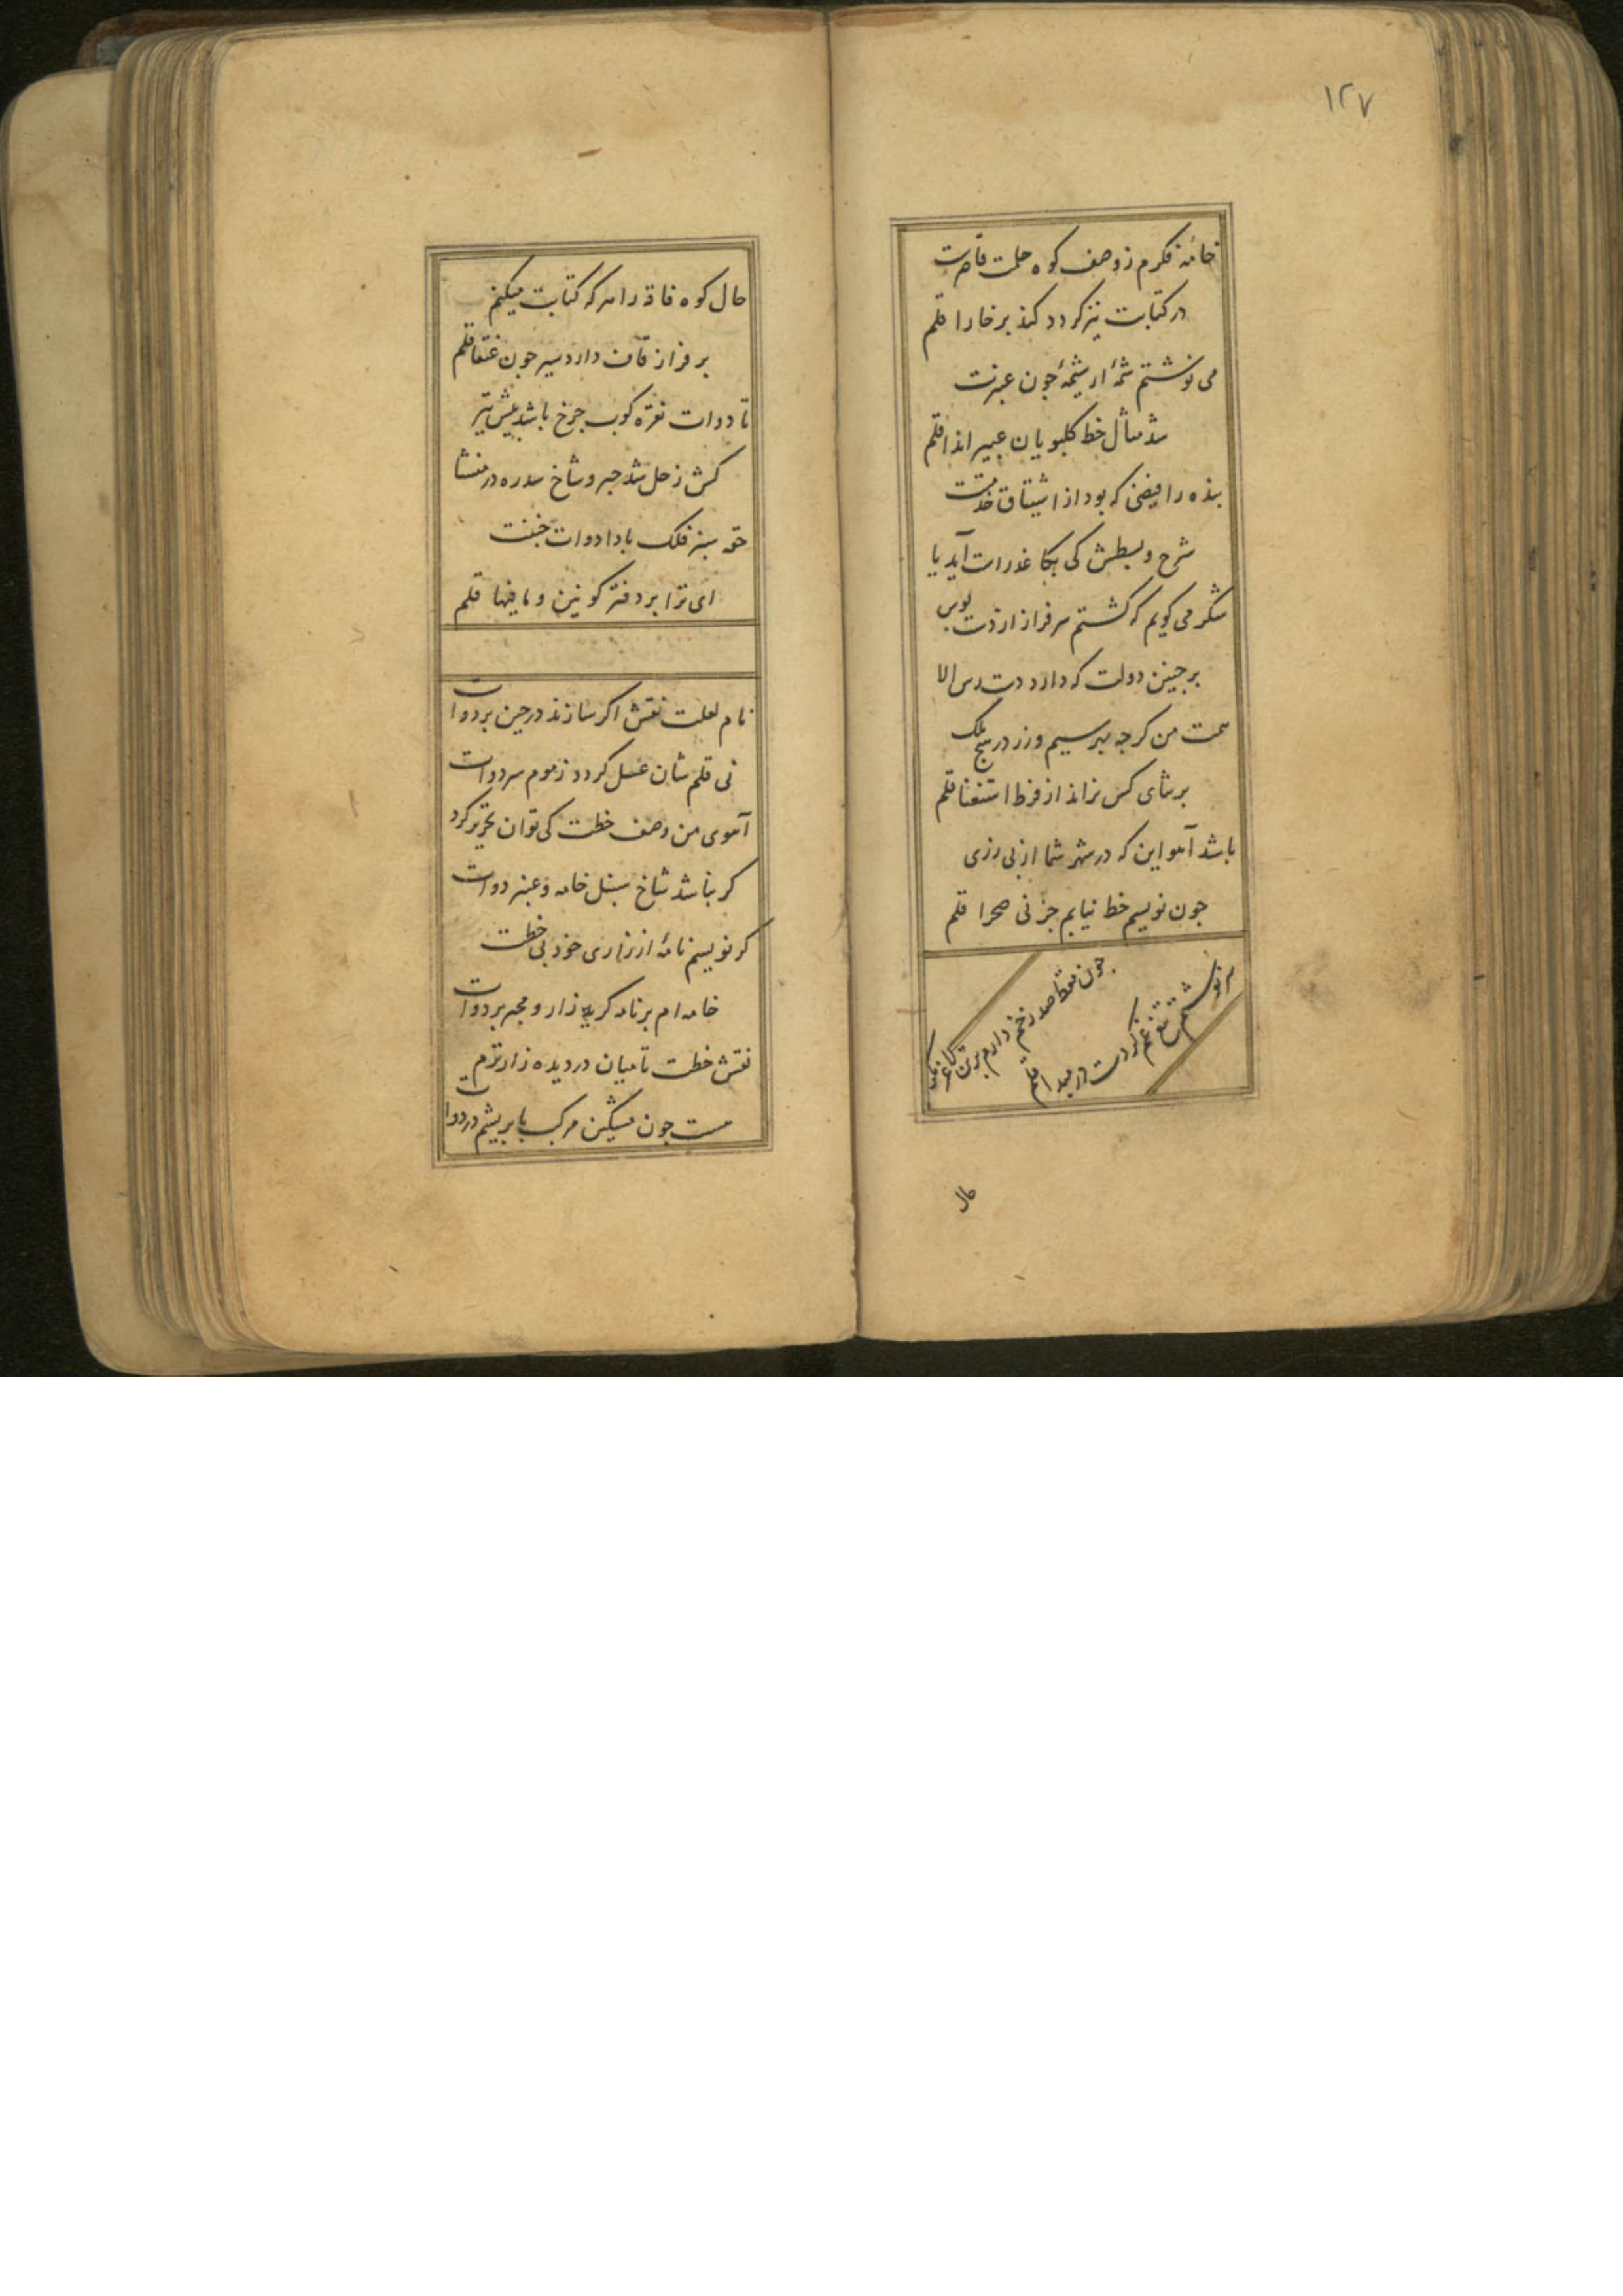 ۱۲۷
خامه فکرم ز وصف کوه حلمت قاصرست
در کتابت تیز کردد کند بر خارا قلم
می نوشتم شمهٔ از شیمهٔ جون عبرت
شد مثال خط کلبویان عبیر اندا قلم
بنده را فیضی که بود از اشتیاق خدمتت
شرح و بسطش کی بکاغذ راست آید یا
شکر می کویم که کشتم سرفراز از دست بوس
بر جنین دولت که دارد دست رس الا
همت من کرجه بر سیم و زر در سلک
بر ثنای کس نراند از فرط استغنا قلم
باشد آهو این که در شهر شما از بی زری
جون نویسم خط نیابم جز نی صحرا قلم
سرنوشتم تیغ غم کردست در مبدا قلم
جون مقط صد زخم دارم بر تن
حال
حال کوه قاف را هر که کتابت میکنم
بر فراز قاف دارد سیر جون عنقا قلم
تا دوات نقره کوب جرخ باشد پیش تیر
کش زحل شد حبر و شاخ سدره در منشا
حقه سبز فلک بادا دوات
ای ترا بر دفتر کونین و ما فیها قلم
نام لعلت نقش اکر سازند در جین بر دوات
نی قلم شان عسل کردد ز موم سر دوات
آهوی من وصف خطت کی توان تحریر کرد
کر نباشد شاخ سنبل خامه و عنبر دوات
کر نویسم نامهٔ از زاری خود بی خطت
خامه ام بر نامه کرید زار و مجبر بر دوات
نقش خطت تا میان دردیده زار ترم
هست جون مشکین مرکب با بریشم در دوات